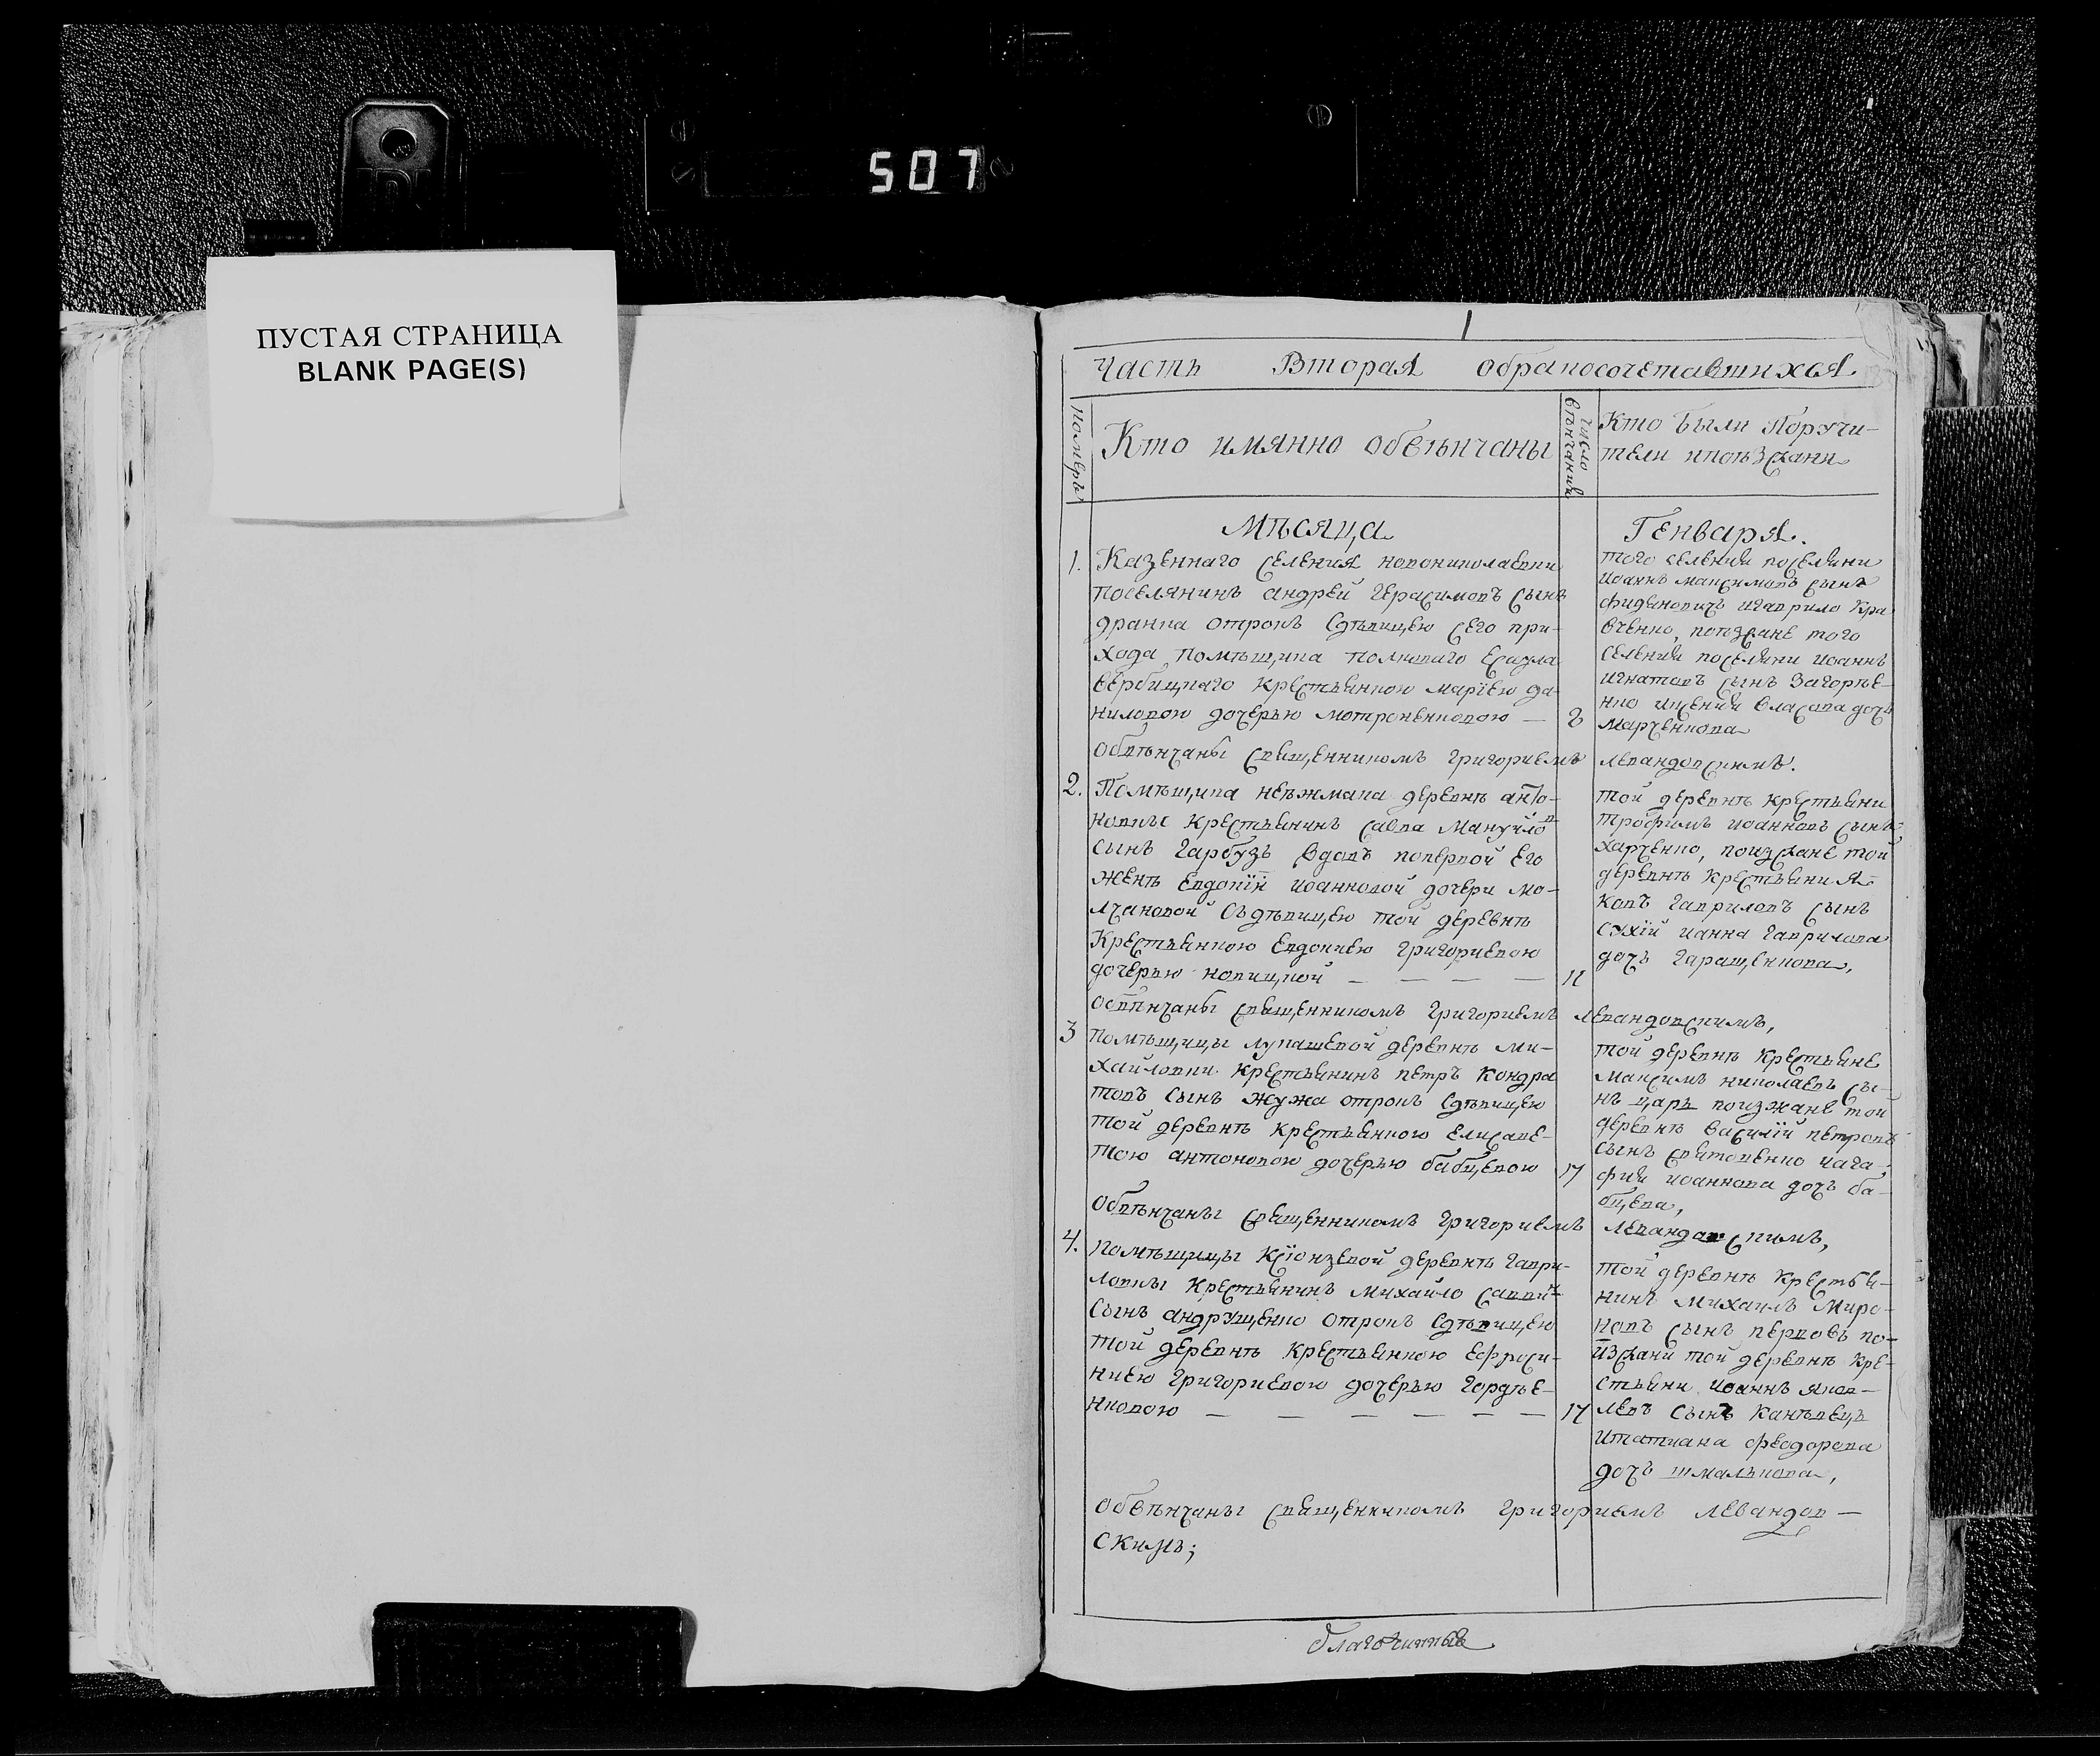 507
ПУСТАЯ СТРАНИЦА
BLANK PAGE(S)
Часть Вторая обракосочетавшихся
Номеръ
Кто имянно обвѣнчаны
Число вѣнчанiй
Кто были Поручи-
тели ипоѣзжани
Мѣсяца
Генваря.
1. Казеннаго селенiя новониколаевки
поселянинъ андрей Герасимовъ сынъ
дранка отрокъ сдѣвицею сего при-
хода помѣщика полковаго Есаула
вербицкаго крестьянкою марiею да-
ниловою дочерью мотроненковою — 8
того селенiя поселяни
иоаннъ максимовъ сынъ
фиденовичъ игаврило Кра
вченко, поѣзжане того
селенiя поселяни иоаннъ
игнатовъ сынъ Загорѣе-
нко иксенiя власова дочь
марченкова
Обвѣнчаны священникомъ григориемъ левандовскимъ.
2. Помѣщика неѣжмака деревнѣ анто-
новки крестьянинъ савва мануйлов
сынъ гарбузъ вдовъ поперво́й его
женѣ евдокiй иоанновой дочери мо-
лчановой съдѣвицею той деревнѣ
крестьянкою евдокиею григориевою
дочерью новицкой — — — — 11
той деревнѣ крестьяни
трофимъ иоанновъ сынъ
харченко, поизжане той
деревнѣ крестьяни Я-
ковъ гавриловъ сынъ
сухiй ианна гаврилова
дочь гаращенкова,
Обвѣнчаны священникомъ григориемъ левандовскимъ,
3 помѣщицы лукашевой деревнѣ ми-
хайловки крестьянинъ петръ кондра
товъ сынъ жужа отрокъ сдѣвицею
той деревнѣ крестьянкою елисаве-
тою антоновою дочерью бабцевою 17
той деревнѣ крестьяне
максимъ николаевъ сы-
нъ царь поизжане той
деревнѣ василiй петровъ
сынъ святоценко иага-
фия иоаннова дочь ба-
бцева,
Обвѣнчаны священникомъ григориемъ левандовскимъ,
4. помѣщицы ксiонзевой деревнѣ гаври-
ловки крестьянинъ михайло саввин
сынъ андрущенко отрокъ сдѣвицею
той деревнѣ крестьянкою ефроси-
ниею григориевою дочерью гордѣе-
нковою — — — — — — 17
той деревнѣ крестья-
нинъ михаилъ миро-
новъ сынъ перковъ по-
изжани той деревнѣ кре-
стьяни иоаннъ яков-
левъ сынъ канѣвецъ
итатиана феодорова
дочь шмалькова,
обвѣнчаны священникомъ григориемъ левандов-
скимъ;
благочинный